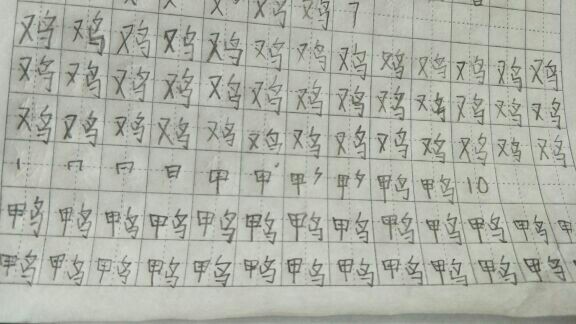 鸡 鸡 7
鸡 鸡 鸡 鸡 鸡 鸡 鸡 鸡 鸡 鸡 鸡 鸡 鸡
鸡 鸡 鸡 鸡 鸡 鸡 鸡 鸡 鸡 鸡 鸡 鸡 鸡
鸡 鸡 鸡 鸡 鸡 鸡 鸡 鸡 鸡 鸡 鸡 鸡 鸡
丨 冂 日 日 甲 甲 鸭 鸭 10
鸭 鸭 鸭 鸭 鸭 鸭 鸭 鸭 鸭 鸭 鸭 鸭 鸭
鸭 鸭 鸭 鸭 鸭 鸭 鸭 鸭 鸭 鸭 鸭 鸭